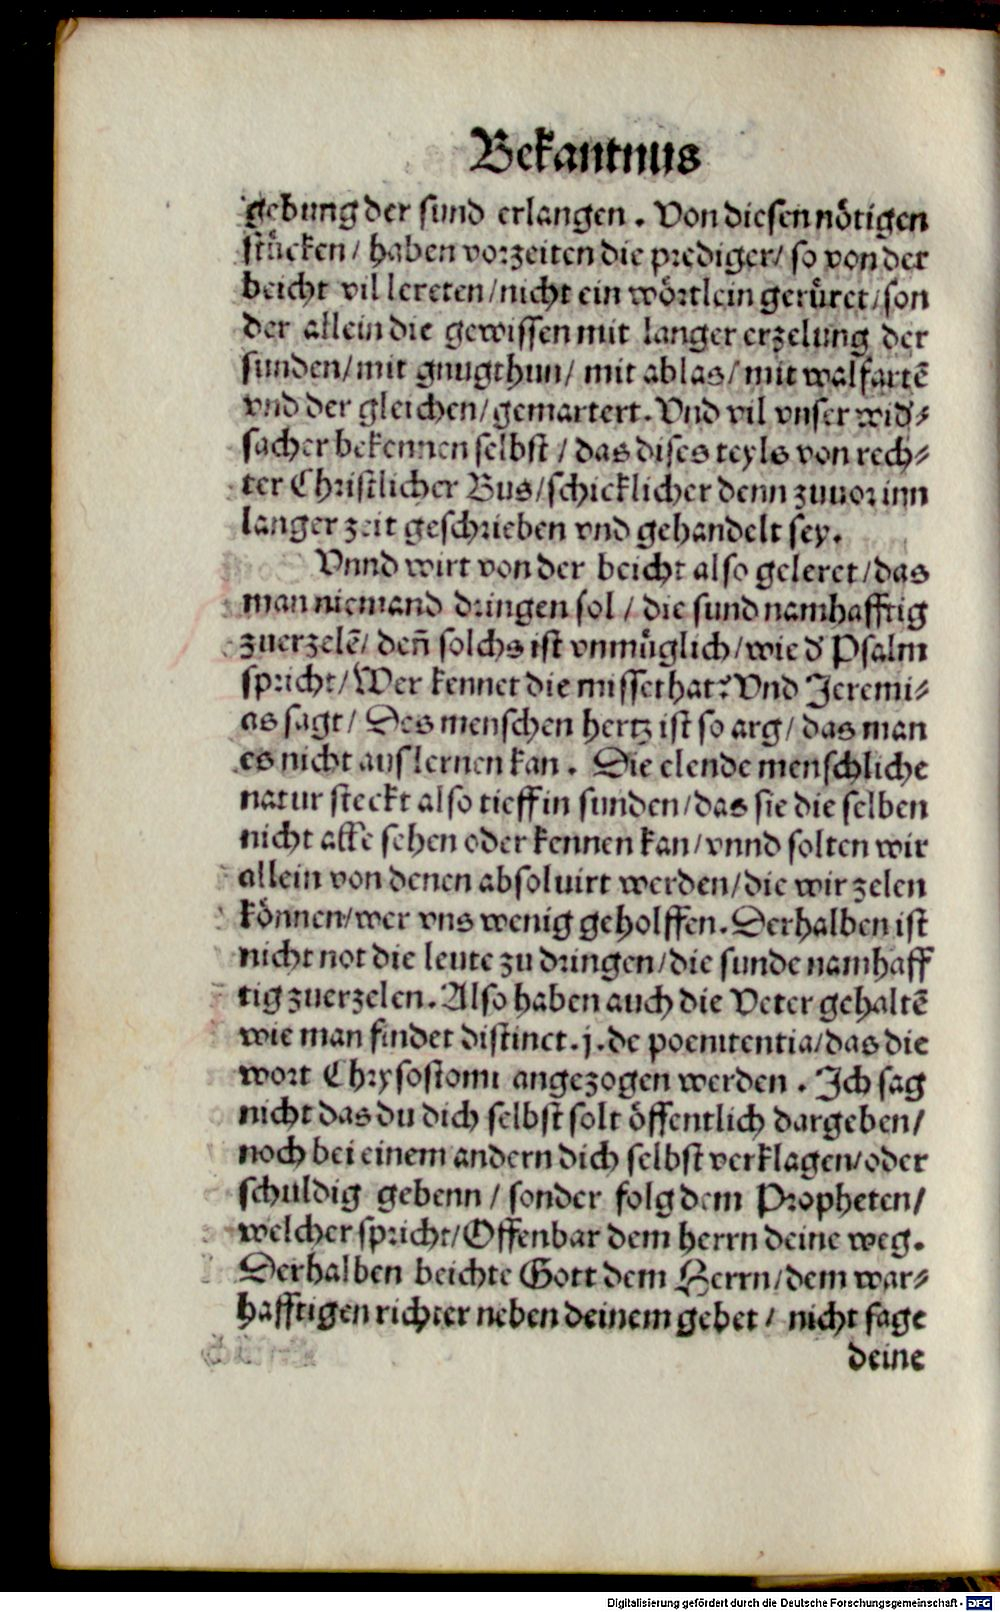 Bekantnus
gebung der sund erlangen. Von diesen nötigen
stücken/ haben vorzeiten die prediger/ so von der
beicht vil lereten/nicht ein wörtlein gerüret/son
der allein die gewissen mit langer erzelung der
sunden/mit gnugthun/ mit ablas/ mit walfartē
vnd der gleichen/gemartert. Vnd vil vnser wid'-
sacher bekennen selbst/ das dises teyls von rech-
ter Christlicher Bus/schicklicher denn zuuor inn
langer zeit geschrieben vnd gehandelt sey.
Vnnd wirt von der beicht also geleret/das
man niemand dringen sol/ die sund namhafftig
zuerzelē/ deñ solchs ist vnmüglich/wie d' Psalm
spricht/Wer kennet die missethat? Vnd Jeremi-
as sagt/ Des menschen hertz ist so arg/ das man
es nicht auslernen kan. Die elende menschliche
natur steckt also tieff in sunden/das sie die selben
nicht alle sehen oder kennen kan/vnnd solten wir
allein von denen absoluirt werden/die wir zelen
können/wer vns wenig geholffen. Derhalben ist
nicht not die leute zu dringen/die sunde namhaff
tig zuerzelen. Also haben auch die Veter gehaltē
wie man findet distinct. j. de poenitentia/das die
wort Chrysostomi angezogen werden. Ich sag
nicht das du dich selbst solt öffentlich dargeben/
noch bei einem andern dich selbst verklagen/oder
schuldig gebenn/ sonder folg dem Propheten/
welcher spricht/Offenbar dem herrn deine weg.
Derhalben beichte Gott dem Herrn/dem war-
hafftigen richter neben deinem gebet/ nicht sage
deine
Digitalisierung gefördert durch die Deutsche Forschungsgemeinschaft - DFG